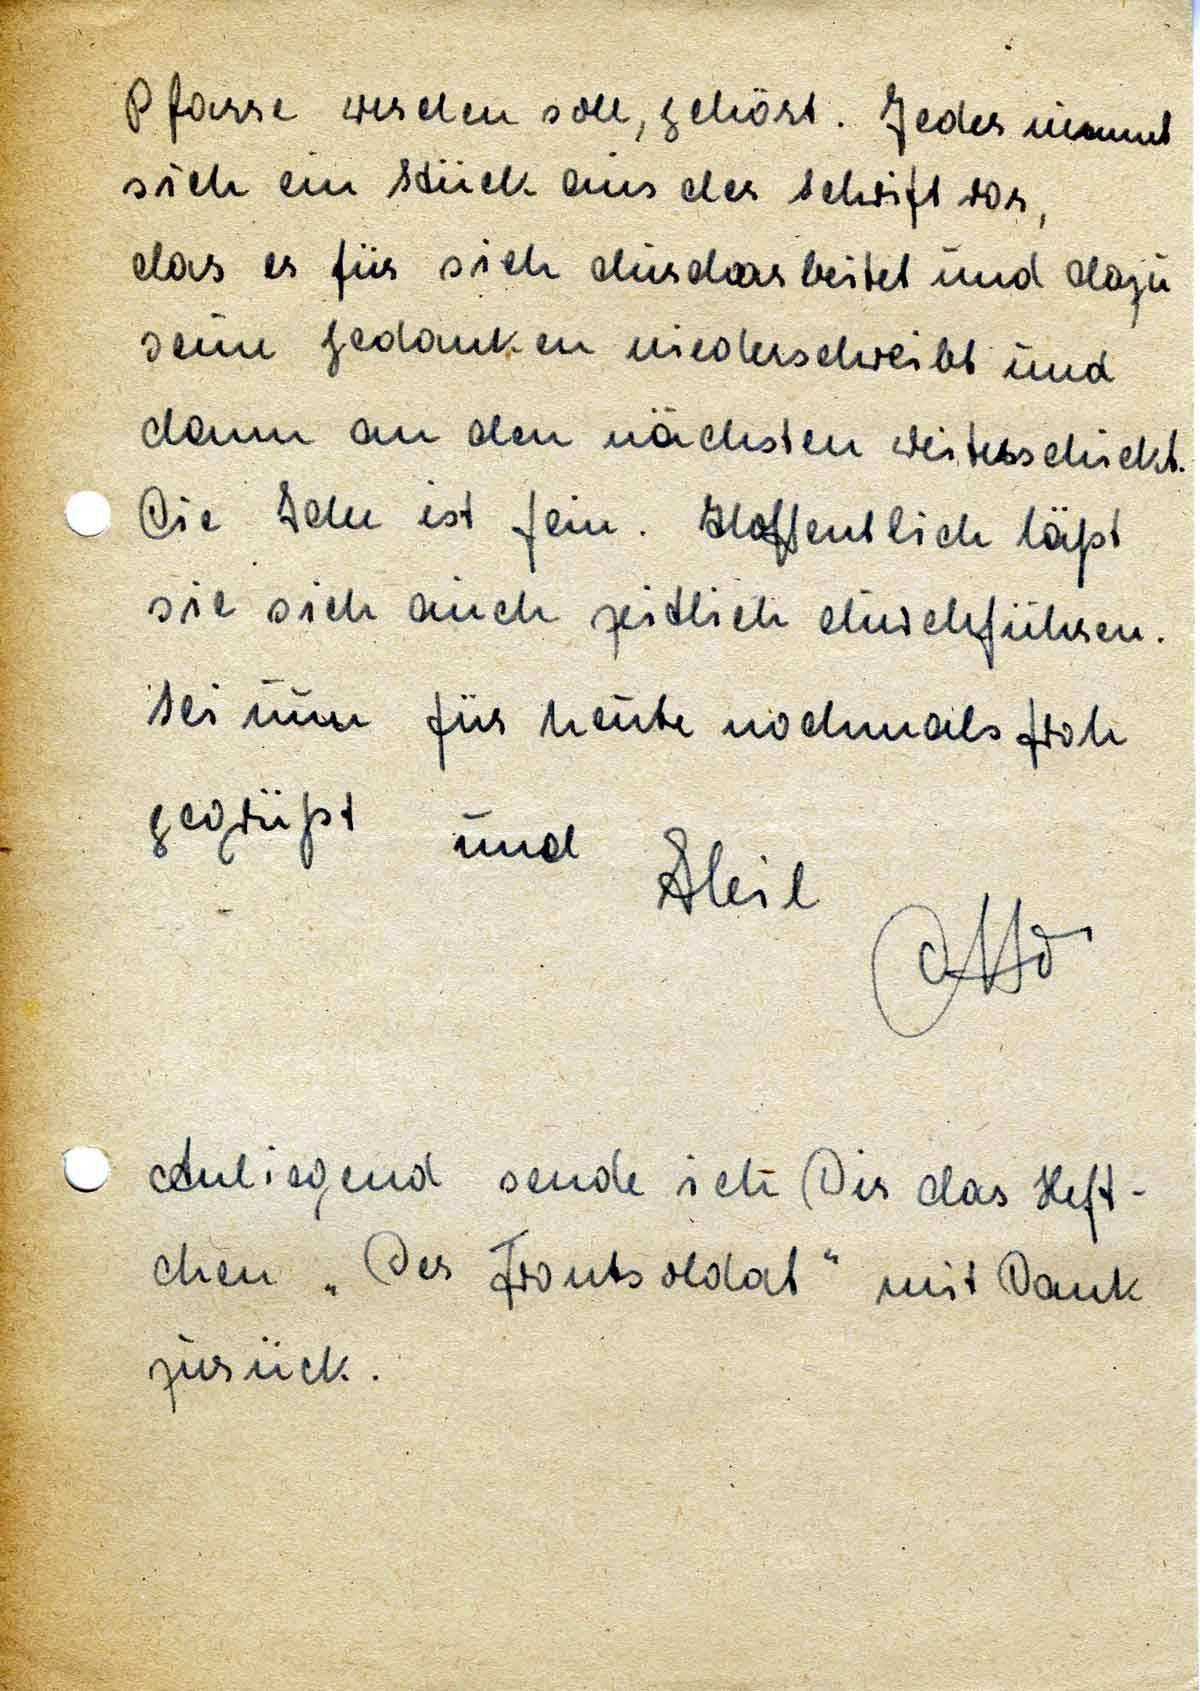 Pfarre werden soll, gehört. Jeder nimmt
sich ein Stück aus der Schrift vor,
das er für sich durcharbeitet und dazu
seine Gedanken niederschreibt und
dann an den nächsten weiterschickt.
Die Idee ist fein. Hoffentlich läßt
sie sich auch zeitlich durchführen.
Sei nun für heute nochmals froh
gegrüßt und Heil
Otto
Anliegend sende ich Dir das Heft-
chen „Der Frontsoldat“ mit Dank
zurück.